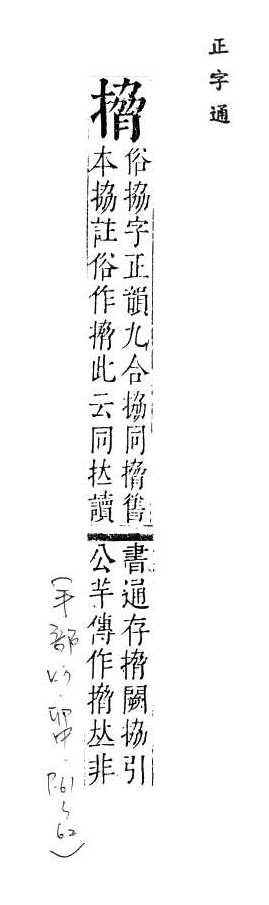 正字通
㩉
俗拹字正韻九合拹同㩉舊
本拹註俗作㩉此云同拉讀
書通存㩉闕拹引
公羊傳作㩉𠀤非
(手部 P.61~62)